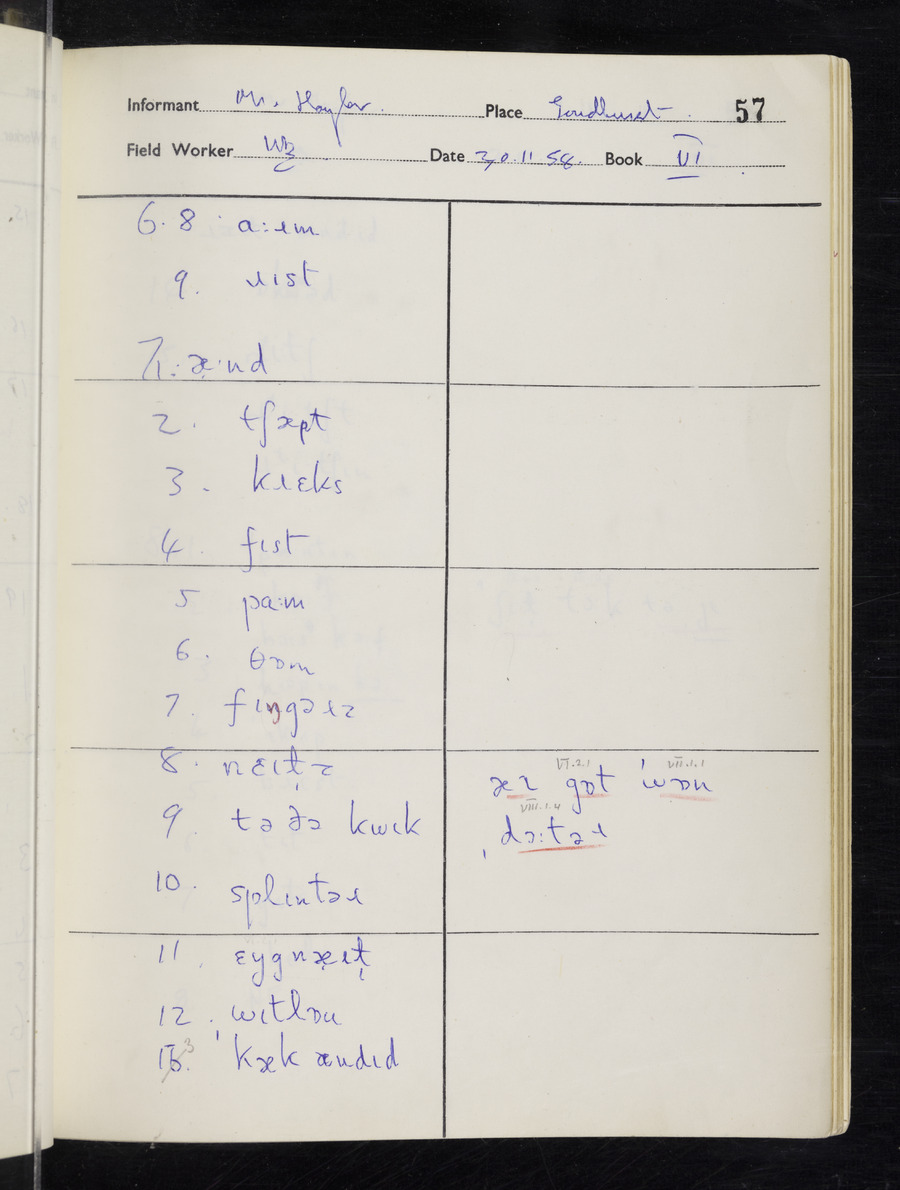 Informant Mr. Place Goudhurst 57
Field Worker Date 30.11.58. Book VI
6.8 ɑ:ɹm
9. ɹɪst
7.1. æ·nd
2. tʃæpt
3. kɹɛks
4. fɪst
5 pɑ:m
6. θɒm
7. fɪŋgəɹz
8. nɛɪɫz
9. tə ðə kwɪk
10. splɪntəɹ
11. ɛŋgnæɪɫ
12. wɪtlɒu
13. ˈkækændɪd
VI.2.1 VII.1.1
æz gɒt ˈwɒn
VIII.1.4
ˌdɔ:təɹ